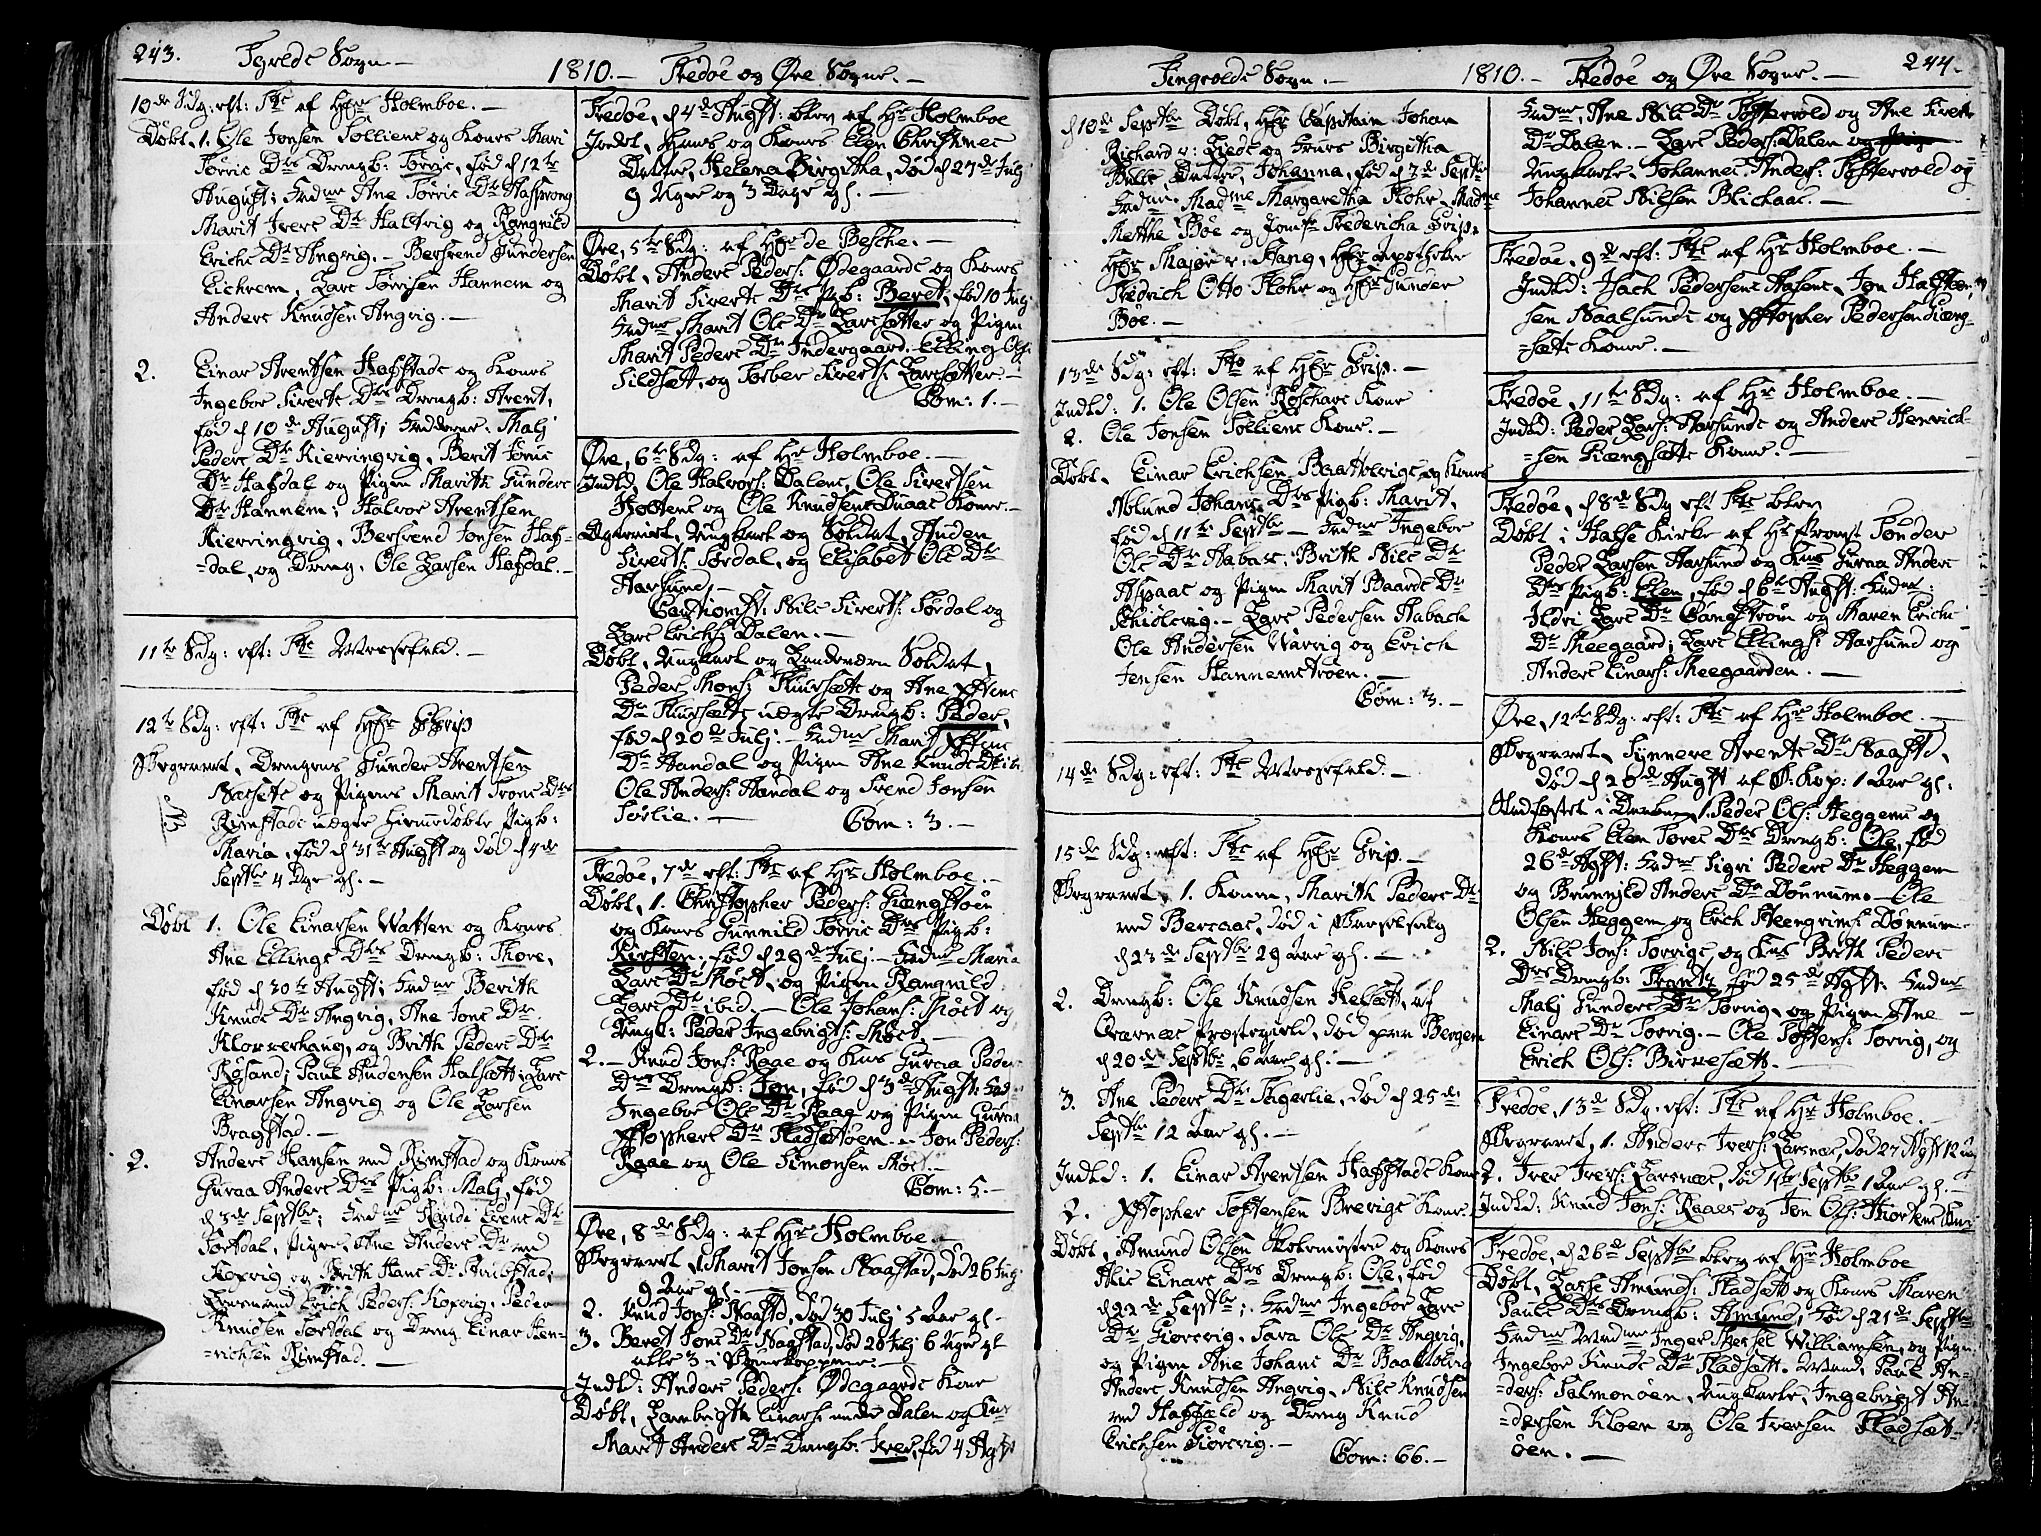 243. Tgvolds Sogn.— 1810.— Fredøe og Øre Sogne.—
10de Sdg: eft: Ttc af Hr Holmboe.—
Døbt. 1. Ole Jonsen Folliens og Kones Mari
Torris Drs Drengb: Torris, fød d 12te
August; Fadne Ane Torris Dr
Marit Ivers Dr Haltvig og Rangnild
Erichs Dr Angvig.— Bersvend Gundersen
Eichrem, Lars Torrisen Hannem og
Anders Knudsen Angvig.—
2. Einar Arentsen Hafstads og Kones
Ingebor Siverts Drs Drengb: Arent,
fød d 10de August; Fadderne. Malj
Peders Dr Kierringvig, Berit Jons
Dr Hafsdal og Pigen Marith Gunders
Dr Hannem; Halvor Arentsen
Kierringvig, Bersvend Jonsen Hafs-
=dal, og Dreng. Ole Larsen Hafsdal.—
11te Sdg: eft: Ttc Messefald.—
12te Sdg: eft: Ttc af Hr Grip
Begravet, Drengens Gunder Arentsen
og Pigens Marit Drs
NB
Rimstads uægte hiemmedøbte Pigb:
Maria, fød d 31te Augst og død d 4de
Septbr 4 Dge gl.—
Døbt 1. Ole Einarsen Watten og Kones
Ane Ellings Drs Drengb: Thore,
fød d 30te Augst; Fadne Berith
Knuds Dr Angvig, Ane Jons Dr
og Brith Peders Dr
Røsand; Paul Audensen Halsætt; Lars
Einarsen Angvig og Ole Larsen
Bragstad.—
2. Anders Hansen ved Rimstad og Kones
Guraa Anders Drs Pigb: Malj, fød
d 3de Septbr; Fadne Dr
Torsdal, Pigen Ane Anders Dr ved
og Brith Hans Dr
Erich Peders: Peder
Knudsen Torsdal og Dreng Einar Hen-
=richsen Rimstad.—
Fredøe, d 4de Augst: blev af Hr Holmboe
Jordet, Hans og Kones Elen Christines
Datter, Helena Birgitha, død d 27de Julj
9 Uger og 3 Dage gl.—
Øre, 5te Sdg: af Hr de Besche.—
Døbt, Anders Peders: Ødegaards og Kones
Marit Siverts Drs Pgb: Beret, fød 10 Julj
Fadne Marit Ols Dr Larssætter og Pigen
Marit Peders Dr Indergaard. Elling Ols:
Sildsætt, og Torber Siverts: Larssætter.—
Com: 1.—
Øre, 6te Sdg: af Hr Holmboe.—
Indld, Ole Halvors: Dalens, Ole Sivertsen
Holtens og Ole Knudsens Duaas Koner.—
Copuleret, Ungkarl og Soldat, Auden
Siverts: Tordal, og Elisabet Ols Dr
Aarsund.—
Cautionist: Nils Siverts: Tordal og
Lars Erichs: Dalen.—
Døbt, Ungkarl og Landeværn Soldat,
Peder Mons: og Ane
Dr uægte Drengb: Peder,
fød d 20de Julj.— Fadne Marit
Dr Aandal og Pigen Ane Knuds Dr ibid
Ole Anders: Aandal og Trend Jonsen
Torlie.— Com: 3.—
Fredøe, 7de eft: Ttc af Hr Holmboe.—
Døbt, 1. Christopher Peders: Giængstøen
og Kones Gunnild Torris Drs Pigb:
Kirsten, fød d 29de Julj.— Fadne Maria
Lars Dr Møest, og Pigen Rangnild
Lars Dr ibid.— Ole Johans: Møest og
Ungk: Peder Ingebrigts: Møest.—
2.— Knud Jons: Raae og Kns Guraa Peders
Drs Drengb: Jon, fød d 3de Augst: Fad-
Ingebor Ole Dr Raae og Pigen Guraa
Xstophers Dr Fladsætøen.— Jon Peders:
Raae og Ole Simonsen Møest.—
Com: 5.—
Øre, 8de Sdg: af Hr Holmboe.—
Begravet 1. Marit Jonsen Naastad, død 26 Julj
9 Aar gl.—
2. Knud Jons: Naastd, død 30 Julj 5 Aar gl.—
3. Beret Jons Dr Naastad, død 28 Julj 6 Uger gl
alle 3 i Børnekopper.—
Indld: Anders Peders: Ødegaards Kone
Døbt, Lambrigth Einars: Dalen og Kns
Marit Anders Dr Drengb: Iver, fød 4 Agst
Tingvolds Sogn.— 1810.— Fredøe og Øre Sogne.— 244.
d 10de Septbr Døbt, Hr Captain Johan
Richard v: og Frues Birgitha
Datter, Johanna, fød d 7de Septbr
Fadne. Madme Margaretha Flohr, Madme
Mette Boe og Jomfr Fredericha Grip.
Hr Major v: Hr Apotheker
Fredrich Otto Flohr og Hr Gunder
Boe.—
13de Sdg: eft: Ttc af Hr Grip.—
Indld: 1. Ole Olsen Kone
2. Ole Jonsen Folliens Kone.—
Døbt. Einar Erichsen og Kones
Johans Drs Pigb: Marit,
fød d 11te Septbr.— Fadne Ingebor
Ols Dr Brith Nils Dr
Aspaas og Pigen Marit Baards Dr
Lars Pedersen Habach
Ole Andersen Warvig og Erich
Jensen Hannemstrøen.—
Com: 3.—
14de Sdg: eft: Ttc Messefald.—
15de Sdg: eft: Ttc af Hr Grip.—
Begravet, 1. Konen, Marith Peders Dr
ved Bercaas, død i Barselseng
d 23de Septbr 29 Aar gl.—
2. Drengb: Ole Knudsen af
Qværnæs Præstegield, død paa Bergem
d 20de Septbr 6 Aar gl.—
3. Ane Peders Dr Fagerlie, død d 25de
Septbr 12 Aar gl.—
Indld: 1. Einar Arentsen Hafstads Kone
2. Xstopher Toftensen Brevigs Kone.
Døbt, Amund Olsen og Kones
Einars Drs Drengb: Ole, fød
d 22de Septbr; Fadne Ingebor Lars
Dr Giørsvig, Sara Ols Dr Angvig,
og Pigen Ane Johans Dr
Anders Knudsen Angvig, Nils Knudsen
ved og Dreng Knud
Erichsen Giørsvig.— Com: 66.—
Fadne, Ane Nils Dr Tostervold og Ane
Dr Dalen.— Lars Peders: Dalen
Ungkarle, Johannes Anders: Tostervold og
Johannes Nilsen Blichaas.—
Fredøe, 9de eft: Ttc af Hr Holmboe.—
Indld: Isach Pedersens Jon Halsten-
sen Naalsunds og Xstopher Pedersen Giæng-
=sæts Kone.—
Fredøe, 11te Sdg: af Hr Holmboe.—
Indld: Peder Lars: Aarsunds og Anders Henrich-
=sen Giængsets Koner.—
Fredøe, d 8de Sdg eft Ttc blev
Døbt i Halse Kirke af Hr Provst Tønder
Peder Larsen Aarsund og Kns Guraa Anders
Drs Pigb: Elen, fød d 6te Augst: Fadne:
Ildri Lars Dr og Maren Erichs
Dr Meegaard; Lars Ellings: Aarsund og
Anders Einars: Meegaarden.—
Øre, 12te Sdg: eft: Ttc af Hr Holmboe.—
Begravet, Synnove Arents Dr Naastd,
død d 26de Augst af B.Kop: 1 Aar gl.
Stadfæstet i Daaben, 1. Peder Ols: Heggems og
Kones Elen Tores Drs Drengb: Ole, fød
26de Agst: Fadne Sigri Peders Dr Heggem
og Brønnild Anders Dr Dønnum.— Ole
Olsen Heggem og Erich Steengrims: Dønnum.
2. Nils Jons: Torvigs, og Kns Brith Peders
Drs Drengb: Frantz fød 25de Agst: Fadne
Malj Gunders Dr Torvig, og Pigen Ane
Einars Dr Torvig.— Ole Toftens: Torvig, og
Erich Ols: Birresætt.—
Fredøe, 13de Sdg: eft: Ttc af Hr Holmboe.—
Begravet, 1. Anders Ivers: død 27 Agst 12
2. Iver Ivers: død Septbr 1 Aar gl.—
Indld: Knud Jons: Raaes og Jon Ols:
Fredøe, d 26de Septbr blev af Hr Holmboe
Døbt, Lasse Amunds: Fladsætt og Kones Maren
Pauls Drs Drengb: Amund, fød d 21de Septbr
Fadne Madme Inger Williamsen, og Pigen
Ingebor Knuds Dr Fladsætt. Mænd, Paul An-
=ders: Salmonøen, Ungkarle, Ingebrigt An-
=dersen og Ole Iversen Fladsæt-
øen.—